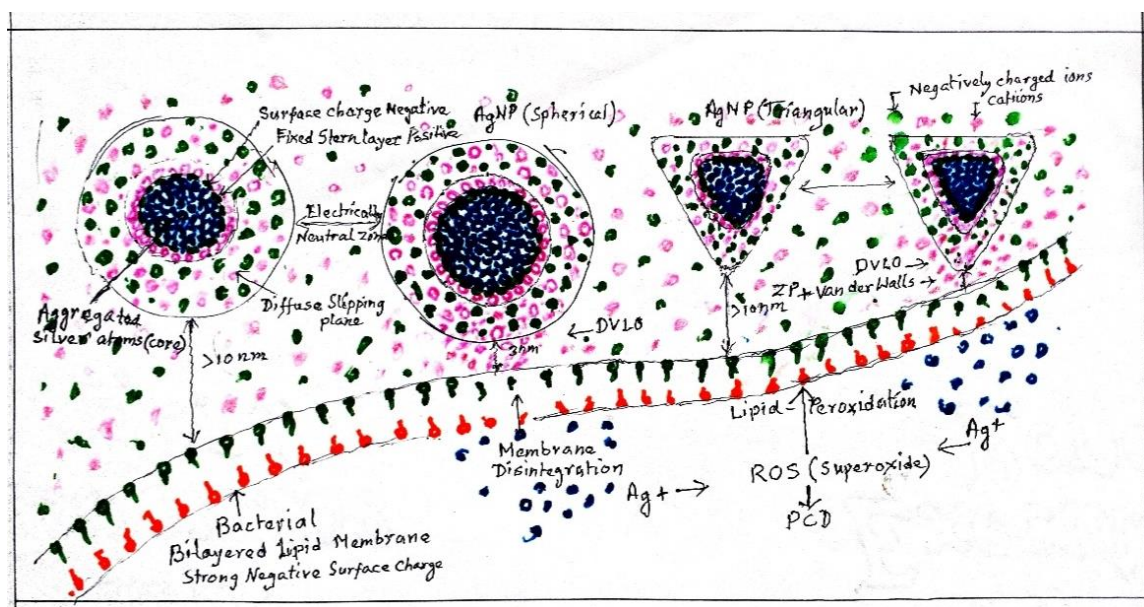 Surface charge Negative
Fixed Stern layer Positive
AgNP (Spherical)
AgNP (Triangular)
Negatively charged ions
cations
Electrically
Neutral Zone
Diffuse Slipping
plane
Aggregated
silver atoms (core)
>10nm
DVLO
3nm
>10nm
DVLO
ZP + Van der Walls
Membrane
Disintegration
Lipid-Peroxidation
Ag+
Ag+
ROS (Superoxide)
PCD
Bacterial
Bilayered Lipid Membrane
Strong Negative Surface Charge